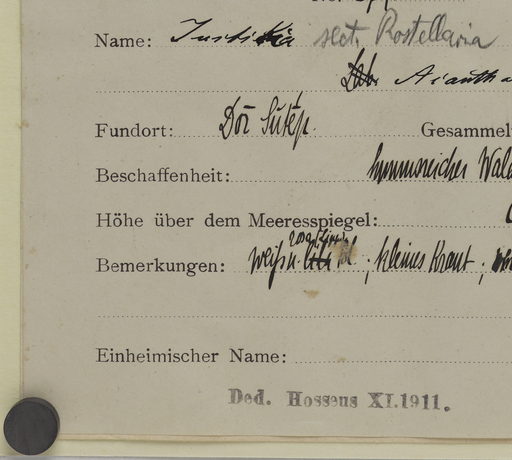 Name: Justicia sect. Rostellaria
Acanth
Fundort: Doi Sutep. Gesammel
Beschaffenheit: humusreicher Wal
Höhe über dem Meeresspiegel:
rosa
Bemerkungen: weiß u. ; kleines Kraut ;
Einheimischer Name:
Ded. Hosseus XI.1911.